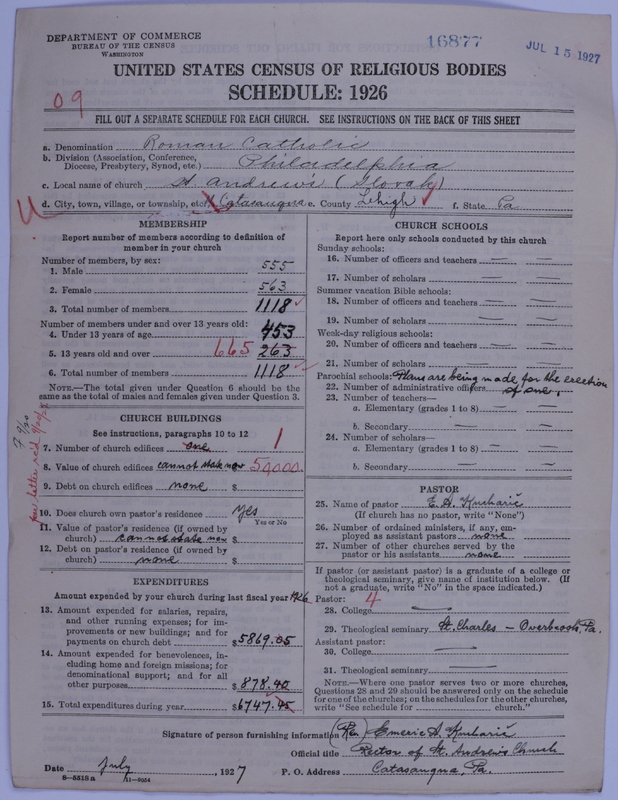 DEPARTMENT OF COMMERCE
BUREAU OF THE CENSUS
WASHINGTON
16877
JUL 15 1927
UNITED STATES CENSUS OF RELIGIOUS BODIES
SCHEDULE: 1926
09
FILL OUT A SEPARATE SCHEDULE FOR EACH CHURCH. SEE INSTRUCTIONS ON THE BACK OF THIS SHEET
a. Denomination Roman Catholic
b. Division (Association, Conference, Diocese, Presbytery, Synod, etc.) Philadelphia
c. Local name of church St. Andrew's (Slovak)
d. City, town, village, or township, etc. Catasauqua e. County Lehigh f. State Pa
MEMBERSHIP
Report number of members according to definition of
member in your church
Number of members, by sex:
1. Male 555
2. Female 563
3. Total number of members 1118
Number of members under and over 13 years old:
4. Under 13 years of age 453
5. 13 years old and over 665 263
6. Total number of members 1118
NOTE.—The total given under Question 6 should be
the same as the total of males and females given under Question 3.
CHURCH BUILDINGS
See instructions, paragraphs 10 to 12
7. Number of church edifices one 1
8. Value of church edifices cannot state now $ 50,000.
9. Debt on church edifices none $
10. Does church own pastor's residence Yes
Yes or No
11. Value of pastor's residence (if owned by
church) cannot state now $
12. Debt on pastor's residence (if owned by
church) none $
EXPENDITURES
Amount expended by church during last fiscal year 1926
13. Amount expended for salaries, repairs,
and other running expenses; for im-
provements or new buildings; and for
payments on church debt $5869.05
14. Amount expended for benevolences, in-
cluding home and foreign missions; for
denominational support; and for all
other purposes $878.40
15. Total expenditures during year $6747.45
CHURCH SCHOOLS
Report here only schools conducted by this church
Sunday schools:
16. Number of officers and teachers — —
17. Number of scholars — —
Summer vacation Bible schools:
18. Number of officers and teachers — —
19. Number of scholars — —
Week-day religious schools:
20. Number of officers and teachers — —
21. Number of scholars — —
Parochial schools: Plans are being made for the erection
22. Number of administrative officers of one.
23. Number of teachers—
a. Elementary (grades 1 to 8) — —
b. Secondary — —
24. Number of scholars—
a. Elementary (grades 1 to 8) — —
b. Secondary — —
PASTOR
25. Name of pastor E. A. Kucharič
(If church has no pastor, write "None")
26. Number of ordained ministers, if any, em-
ployed as assistant pastors none
27. Number of other churches served by the
pastor or his assistants none
If pastor (or assistant pastor) is a graduate of a college or
theological seminary, give name of institution below. (If
not a graduate, write "No" in the space indicated.)
Pastor: 4
28. College —
29. Theological seminary St. Charles – Overbrook, Pa.
Assistant pastor:
30. College —
31. Theological seminary —
NOTE.—Where one pastor serves two or more churches,
Questions 28 and 29 should be answered only on the schedule
for one of the churches; on the schedules for the other churches,
write "See schedule for church."
Signature of person furnishing information (Rev.) Emeric A. Kucharič
Official title Rector of St. Andrew's Church
Date July, 1927 P. O. Address Catasauqua, Pa.
8-5518a 11-9054